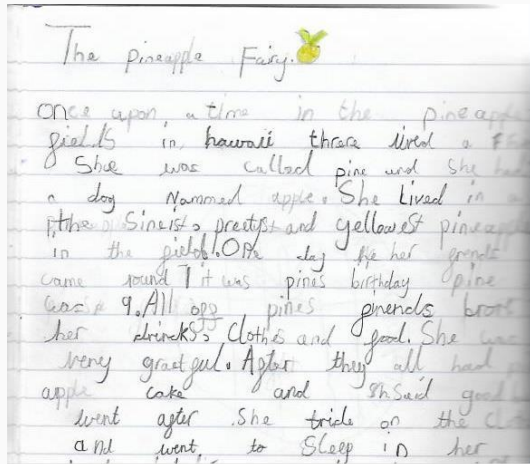 The pineapple Fairy.
Once upon a time in the pineapp
fields in hawaii thrare lived a F
Shoe was called pine and she ha
a dog Nammed apple. She Lived in a
the Sineist, preetyst and yellowest pineapp
in the field. One day her frends
came round it was pines birthday pine
was 9. All off pines frends brort
her drincks, Clothes and food. She was
very gratful. After they all had
apple cake and Said good
went after She tride on the Clo
and went to Sleep in her